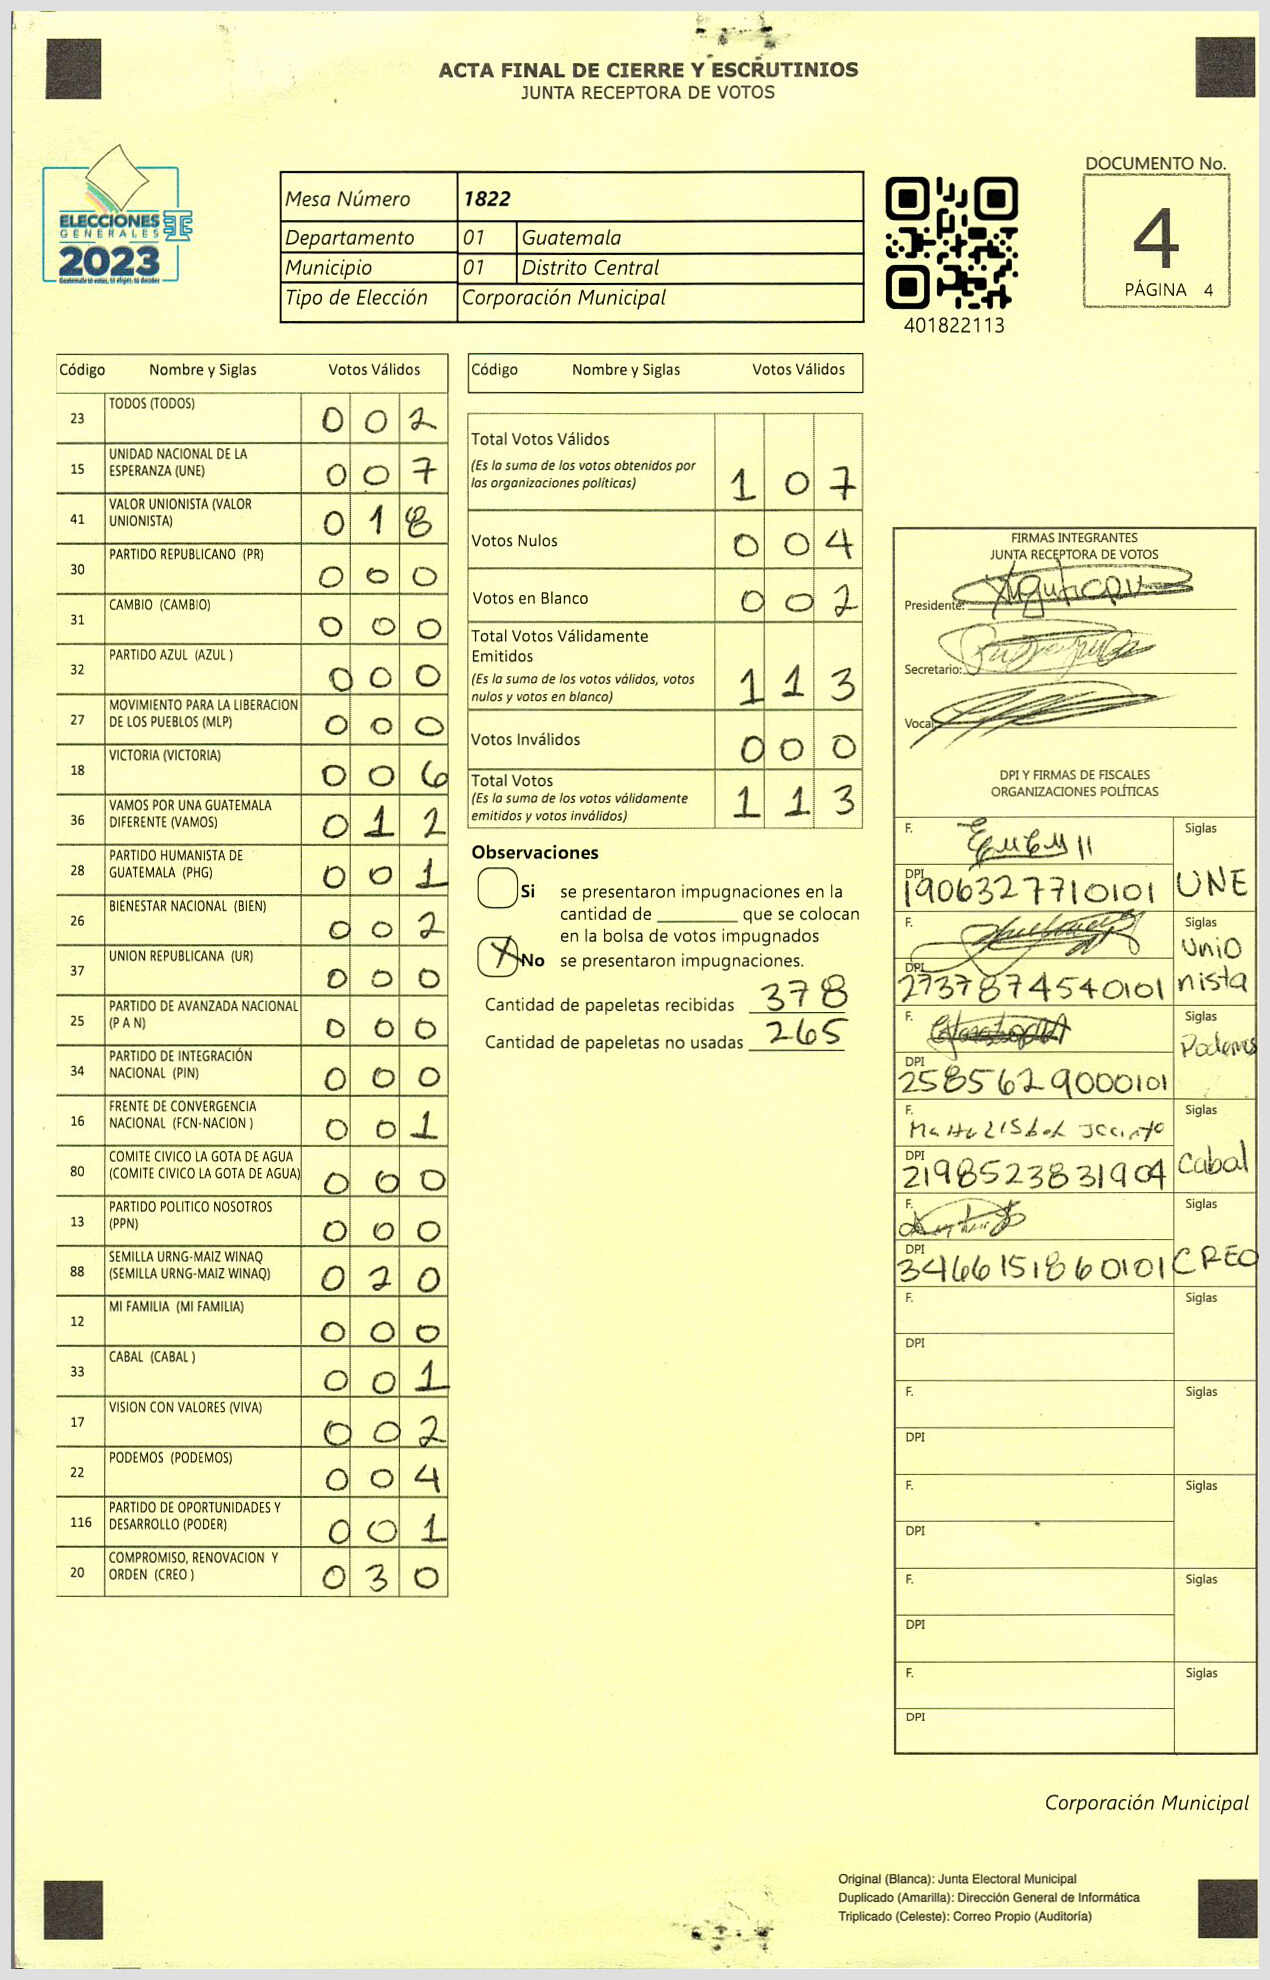 ACTA FINAL DE CIERRE Y ESCRUTINIOS
JUNTA RECEPTORA DE VOTOS
ELECCIONES
GENERALES
2023
Guatemala tú votas, tú eliges, tú decides
Mesa Número 1822
Departamento 01 Guatemala
Municipio 01 Distrito Central
Tipo de Elección Corporación Municipal
401822113
DOCUMENTO No.
4
PÁGINA 4
Código Nombre y Siglas Votos Válidos
23 TODOS (TODOS) 0 0 2
15 UNIDAD NACIONAL DE LA ESPERANZA (UNE) 0 0 7
41 VALOR UNIONISTA (VALOR UNIONISTA) 0 1 8
30 PARTIDO REPUBLICANO (PR) 0 0 0
31 CAMBIO (CAMBIO) 0 0 0
32 PARTIDO AZUL (AZUL ) 0 0 0
27 MOVIMIENTO PARA LA LIBERACION DE LOS PUEBLOS (MLP) 0 0 0
18 VICTORIA (VICTORIA) 0 0 6
36 VAMOS POR UNA GUATEMALA DIFERENTE (VAMOS) 0 1 2
28 PARTIDO HUMANISTA DE GUATEMALA (PHG) 0 0 1
26 BIENESTAR NACIONAL (BIEN) 0 0 2
37 UNION REPUBLICANA (UR) 0 0 0
25 PARTIDO DE AVANZADA NACIONAL (P A N) 0 0 0
34 PARTIDO DE INTEGRACIÓN NACIONAL (PIN) 0 0 0
16 FRENTE DE CONVERGENCIA NACIONAL (FCN-NACION ) 0 0 1
80 COMITE CIVICO LA GOTA DE AGUA (COMITE CIVICO LA GOTA DE AGUA) 0 0 0
13 PARTIDO POLITICO NOSOTROS (PPN) 0 0 0
88 SEMILLA URNG-MAIZ WINAQ (SEMILLA URNG-MAIZ WINAQ) 0 2 0
12 MI FAMILIA (MI FAMILIA) 0 0 0
33 CABAL (CABAL ) 0 0 1
17 VISION CON VALORES (VIVA) 0 0 2
22 PODEMOS (PODEMOS) 0 0 4
116 PARTIDO DE OPORTUNIDADES Y DESARROLLO (PODER) 0 0 1
20 COMPROMISO, RENOVACION Y ORDEN (CREO ) 0 3 0
Código Nombre y Siglas Votos Válidos
Total Votos Válidos
(Es la suma de los votos obtenidos por
las organizaciones políticas) 1 0 7
Votos Nulos 0 0 4
Votos en Blanco 0 0 2
Total Votos Válidamente
Emitidos
(Es la suma de los votos válidos, votos
nulos y votos en blanco) 1 1 3
Votos Inválidos 0 0 0
Total Votos
(Es la suma de los votos válidamente
emitidos y votos inválidos) 1 1 3
Observaciones
Si se presentaron impugnaciones en la
cantidad de ________ que se colocan
en la bolsa de votos impugnados
X No se presentaron impugnaciones.
Cantidad de papeletas recibidas 378
Cantidad de papeletas no usadas 265
FIRMAS INTEGRANTES
JUNTA RECEPTORA DE VOTOS
Presidente:
Secretario:
Vocal
DPI Y FIRMAS DE FISCALES
ORGANIZACIONES POLÍTICAS
F. Siglas
DPI 1906327710101 UNE
F. Siglas
DPI 2737874540101 Unio
nista
F. Siglas
DPI 2585629000101 Podemos
F. Siglas
DPI 2198523831904 Cabal
F. Siglas
DPI 3466151860101 CREO
F. Siglas
DPI
F. Siglas
DPI
F. Siglas
DPI
F. Siglas
DPI
F. Siglas
DPI
Corporación Municipal
Original (Blanca): Junta Electoral Municipal
Duplicado (Amarilla): Dirección General de Informática
Triplicado (Celeste): Correo Propio (Auditoría)